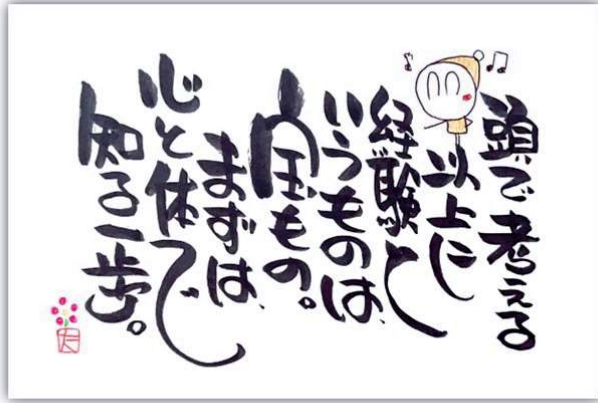 頭で考える
以上に
経験と
いうものは、
宝もの。
まずは、
心と体で
知る一歩。